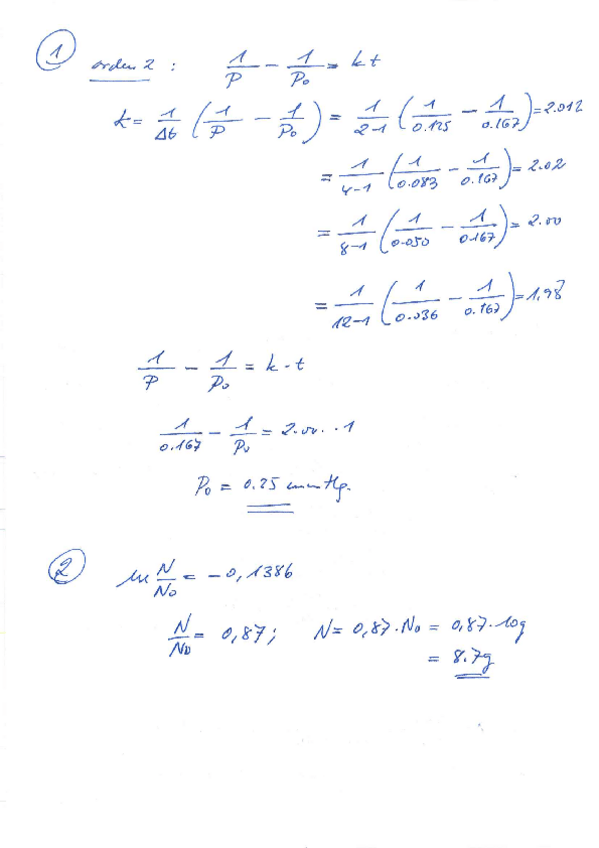 1
orden 2 : 1/P - 1/P₀ = k t
k = 1/Δt (1/P - 1/P₀) = 1/2-1 (1/0.125 - 1/0.167) = 2.012
= 1/4-1 (1/0.083 - 1/0.167) = 2.02
= 1/8-1 (1/0.050 - 1/0.167) = 2.00
= 1/12-1 (1/0.036 - 1/0.167) = 1,98
1/P - 1/P₀ = k · t
1/0.167 - 1/P₀ = 2.00 · 1
P₀ = 0.25 mmHg.
2
ln N/N₀ = -0,1386
N/N₀ = 0,87; N = 0,87 · N₀ = 0,87 · 10g
= 8.7g